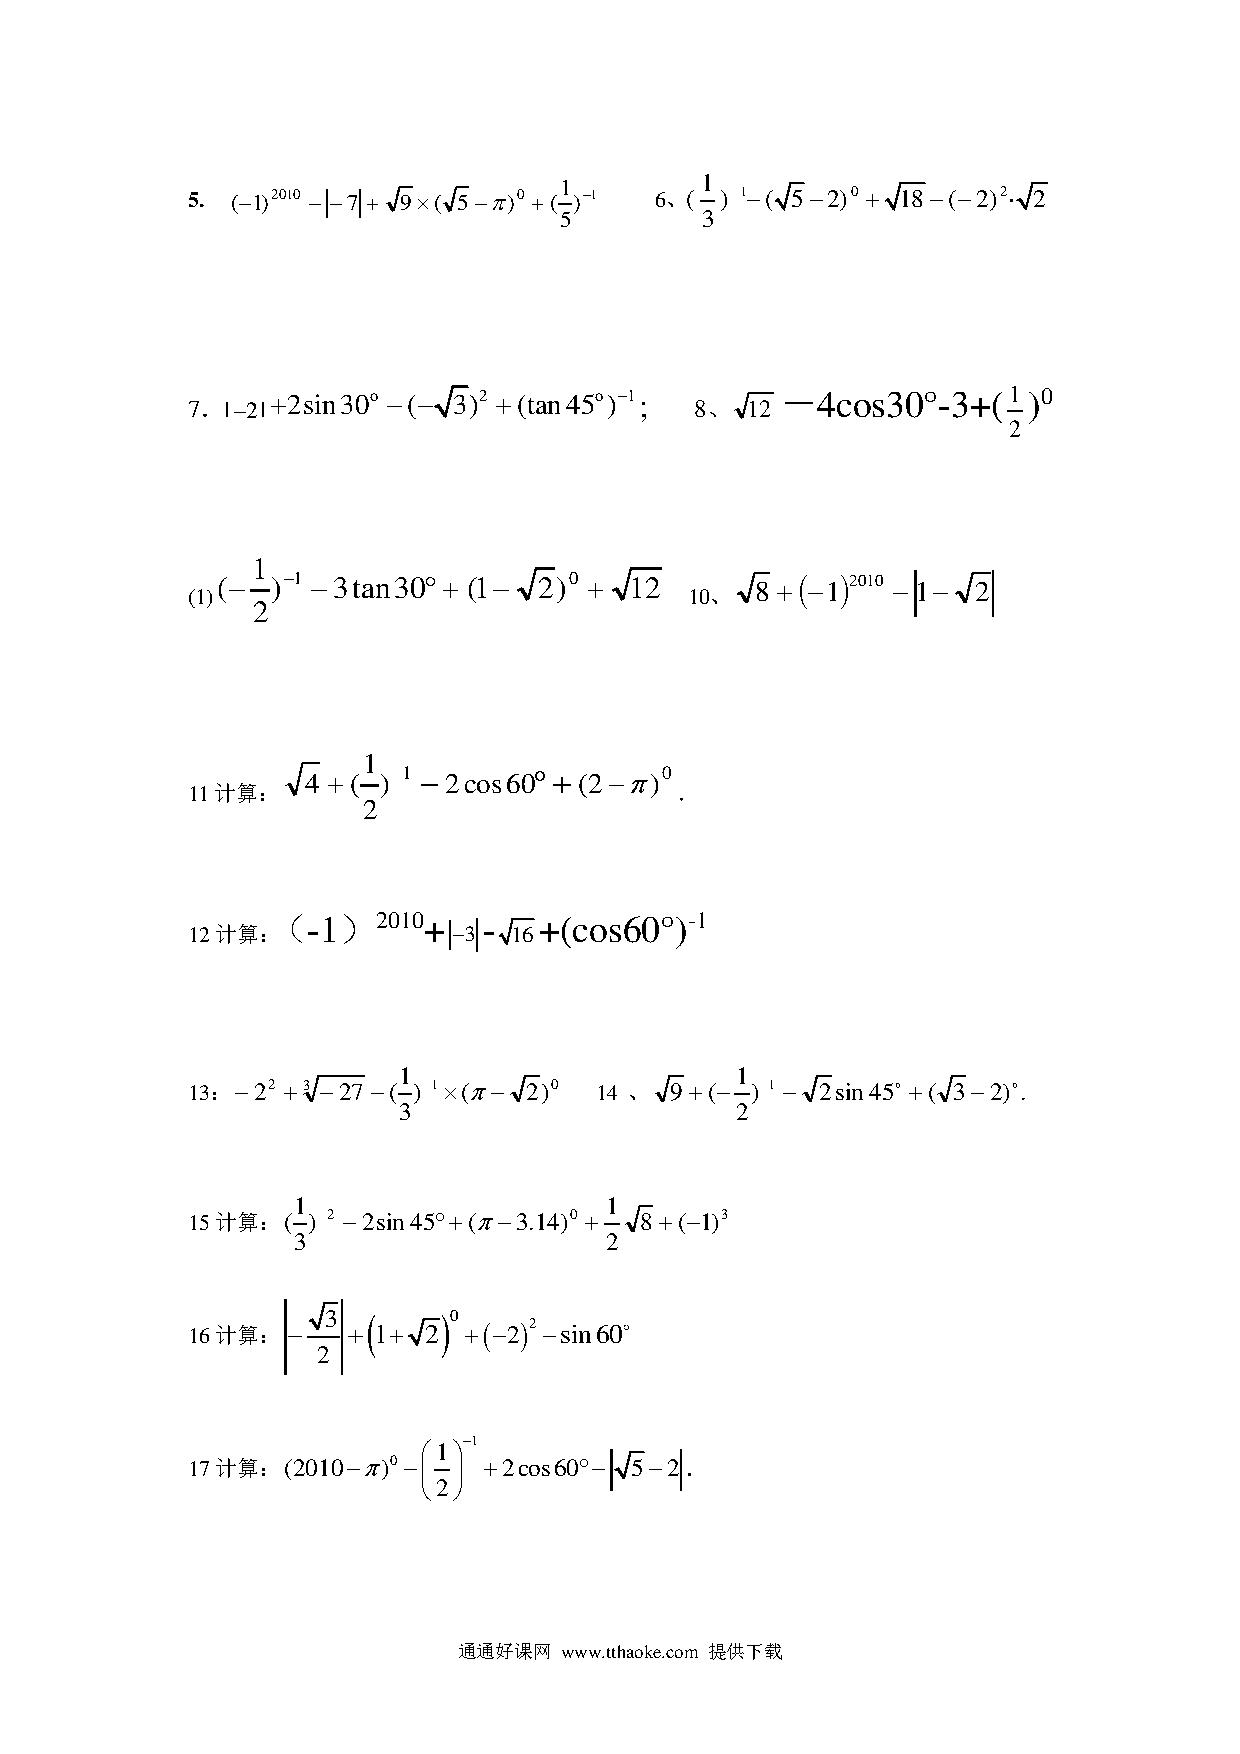 5. (−1)^2010 − |−7| + √9 × (√5 − π)^0 + (1/5)^−1 6、(1/3)^1 − (√5 − 2)^0 + √18 − (−2)^2 · √2
7．|−2| + 2sin30° − (−√3)^2 + (tan45°)^−1； 8、√12 －4cos30°-3+(1/2)^0
(1) (−1/2)^−1 − 3tan30° + (1 − √2)^0 + √12 10、√8 + (−1)^2010 − |1 − √2|
11 计算：√4 + (1/2)^1 − 2cos60° + (2 − π)^0．
12 计算：（-1）^2010+|−3|-√16+(cos60°)^-1
13：−2^2 + ∛−27 − (1/3)^1 × (π − √2)^0 14 、√9 + (−1/2)^1 − √2sin45° + (√3 − 2)°.
15 计算：(1/3)^2 − 2sin45° + (π − 3.14)^0 + 1/2√8 + (−1)^3
16 计算：|−√3/2| + (1 + √2)^0 + (−2)^2 − sin60°
17 计算：(2010 − π)^0 − (1/2)^−1 + 2cos60° − |√5 − 2|．
通通好课网 www.tthaoke.com 提供下载